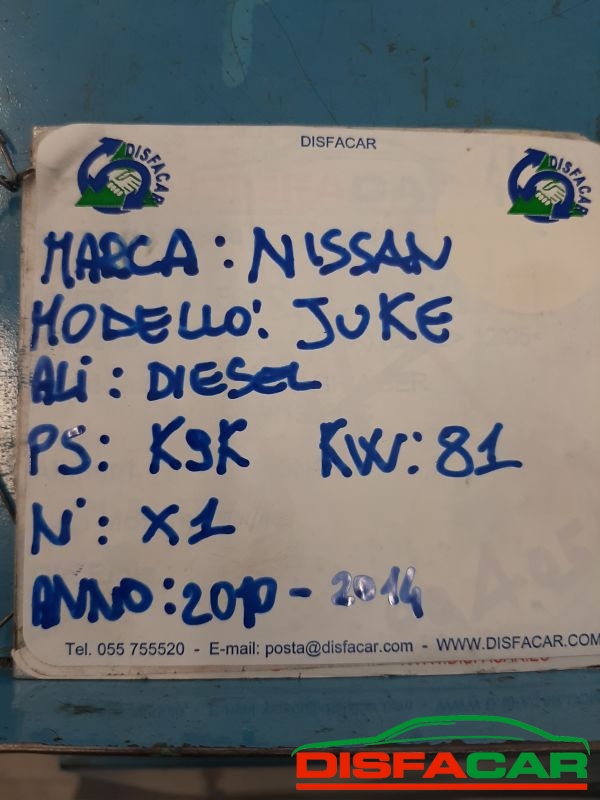 DISFACAR
DISFACAR
DISFACAR
MARCA: NISSAN
MODELLO: JUKE
ALi: DIESEL
PS: K9K KW: 81
N°: X1
ANNO: 2010 - 2014
Tel. 055 755520 - E-mail: posta@disfacar.com - WWW.DISFACAR.COM
DISFACAR